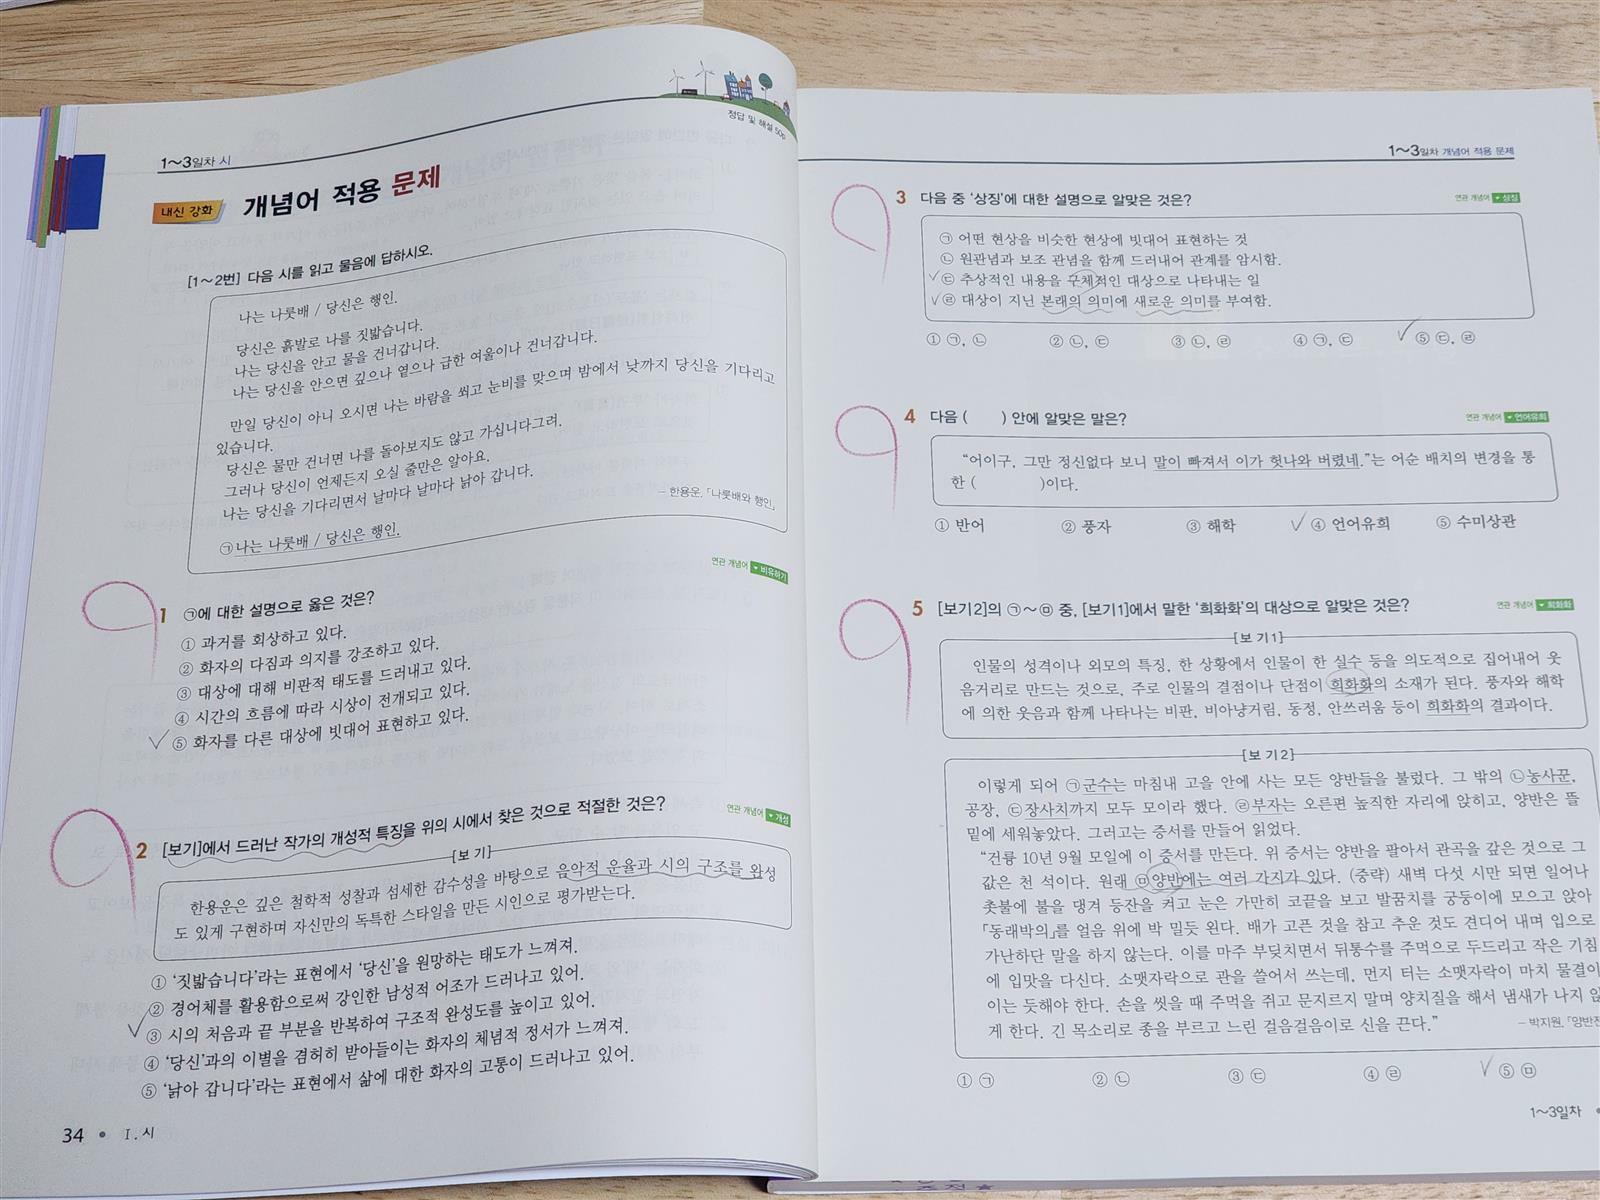 정답 및 해설 50p
1~3일차 시
내신 강화 개념어 적용 문제
[1~2번] 다음 시를 읽고 물음에 답하시오.
나는 나룻배 / 당신은 행인.
당신은 흙발로 나를 짓밟습니다.
나는 당신을 안고 물을 건너갑니다.
나는 당신을 안으면 깊으나 옅으나 급한 여울이나 건너갑니다.
만일 당신이 아니 오시면 나는 바람을 쐬고 눈비를 맞으며 밤에서 낮까지 당신을 기다리고
있습니다.
당신은 물만 건너면 나를 돌아보지도 않고 가십니다그려.
그러나 당신이 언제든지 오실 줄만은 알아요.
나는 당신을 기다리면서 날마다 날마다 낡아 갑니다.
㉠나는 나룻배 / 당신은 행인.
– 한용운, 「나룻배와 행인」
연관 개념어 비유하기
1 ㉠에 대한 설명으로 옳은 것은?
① 과거를 회상하고 있다.
② 화자의 다짐과 의지를 강조하고 있다.
③ 대상에 대해 비판적 태도를 드러내고 있다.
④ 시간의 흐름에 따라 시상이 전개되고 있다.
⑤ 화자를 다른 대상에 빗대어 표현하고 있다.
연관 개념어 개성
2 [보기]에서 드러난 작가의 개성적 특징을 위의 시에서 찾은 것으로 적절한 것은?
[보 기]
한용운은 깊은 철학적 성찰과 섬세한 감수성을 바탕으로 음악적 운율과 시의 구조를 완성
도 있게 구현하며 자신만의 독특한 스타일을 만든 시인으로 평가받는다.
① ‘짓밟습니다’라는 표현에서 ‘당신’을 원망하는 태도가 느껴져.
② 경어체를 활용함으로써 강인한 남성적 어조가 드러나고 있어.
③ 시의 처음과 끝 부분을 반복하여 구조적 완성도를 높이고 있어.
④ ‘당신’과의 이별을 겸허히 받아들이는 화자의 체념적 정서가 느껴져.
⑤ ‘낡아 갑니다’라는 표현에서 삶에 대한 화자의 고통이 드러나고 있어.
34 • Ⅰ. 시
1~3일차 개념어 적용 문제
3 다음 중 ‘상징’에 대한 설명으로 알맞은 것은?
연관 개념어 상징
㉠ 어떤 현상을 비슷한 현상에 빗대어 표현하는 것
㉡ 원관념과 보조 관념을 함께 드러내어 관계를 암시함.
㉢ 추상적인 내용을 구체적인 대상으로 나타내는 일
㉣ 대상이 지닌 본래의 의미에 새로운 의미를 부여함.
① ㉠, ㉡ ② ㉡, ㉢ ③ ㉡, ㉣ ④ ㉠, ㉢ ⑤ ㉢, ㉣
4 다음 ( ) 안에 알맞은 말은?
연관 개념어 언어유희
“어이구, 그만 정신없다 보니 말이 빠져서 이가 헛나와 버렸네.”는 어순 배치의 변경을 통
한 ( )이다.
① 반어 ② 풍자 ③ 해학 ④ 언어유희 ⑤ 수미상관
5 [보기2]의 ㉠~㉤ 중, [보기1]에서 말한 ‘희화화’의 대상으로 알맞은 것은?
연관 개념어 희화화
[보 기1]
인물의 성격이나 외모의 특징, 한 상황에서 인물이 한 실수 등을 의도적으로 집어내어 웃
음거리로 만드는 것으로, 주로 인물의 결점이나 단점이 희화화의 소재가 된다. 풍자와 해학
에 의한 웃음과 함께 나타나는 비판, 비아냥거림, 동정, 안쓰러움 등이 희화화의 결과이다.
[보 기2]
이렇게 되어 ㉠군수는 마침내 고을 안에 사는 모든 양반들을 불렀다. 그 밖의 ㉡농사꾼,
공장, ㉢장사치까지 모두 모이라 했다. ㉣부자는 오른편 높직한 자리에 앉히고, 양반은 뜰
밑에 세워놓았다. 그러고는 증서를 만들어 읽었다.
“건륭 10년 9월 모일에 이 증서를 만든다. 위 증서는 양반을 팔아서 관곡을 갚은 것으로 그
값은 천 석이다. 원래 ㉤양반에는 여러 가지가 있다. (중략) 새벽 다섯 시만 되면 일어나
촛불에 불을 댕겨 등잔을 켜고 눈은 가만히 코끝을 보고 발꿈치를 궁둥이에 모으고 앉아
「동래박의」를 얼음 위에 박 밀듯 왼다. 배가 고픈 것을 참고 추운 것도 견디어 내며 입으로
가난하단 말을 하지 않는다. 이를 마주 부딪치면서 뒤통수를 주먹으로 두드리고 작은 기침
에 입맛을 다신다. 소맷자락으로 관을 쓸어서 쓰는데, 먼지 터는 소맷자락이 마치 물결이
이는 듯해야 한다. 손을 씻을 때 주먹을 쥐고 문지르지 말며 양치질을 해서 냄새가 나지 않
게 한다. 긴 목소리로 종을 부르고 느린 걸음걸음이로 신을 끈다.”
– 박지원, 「양반전
① ㉠ ② ㉡ ③ ㉢ ④ ㉣ ⑤ ㉤
1~3일차 •